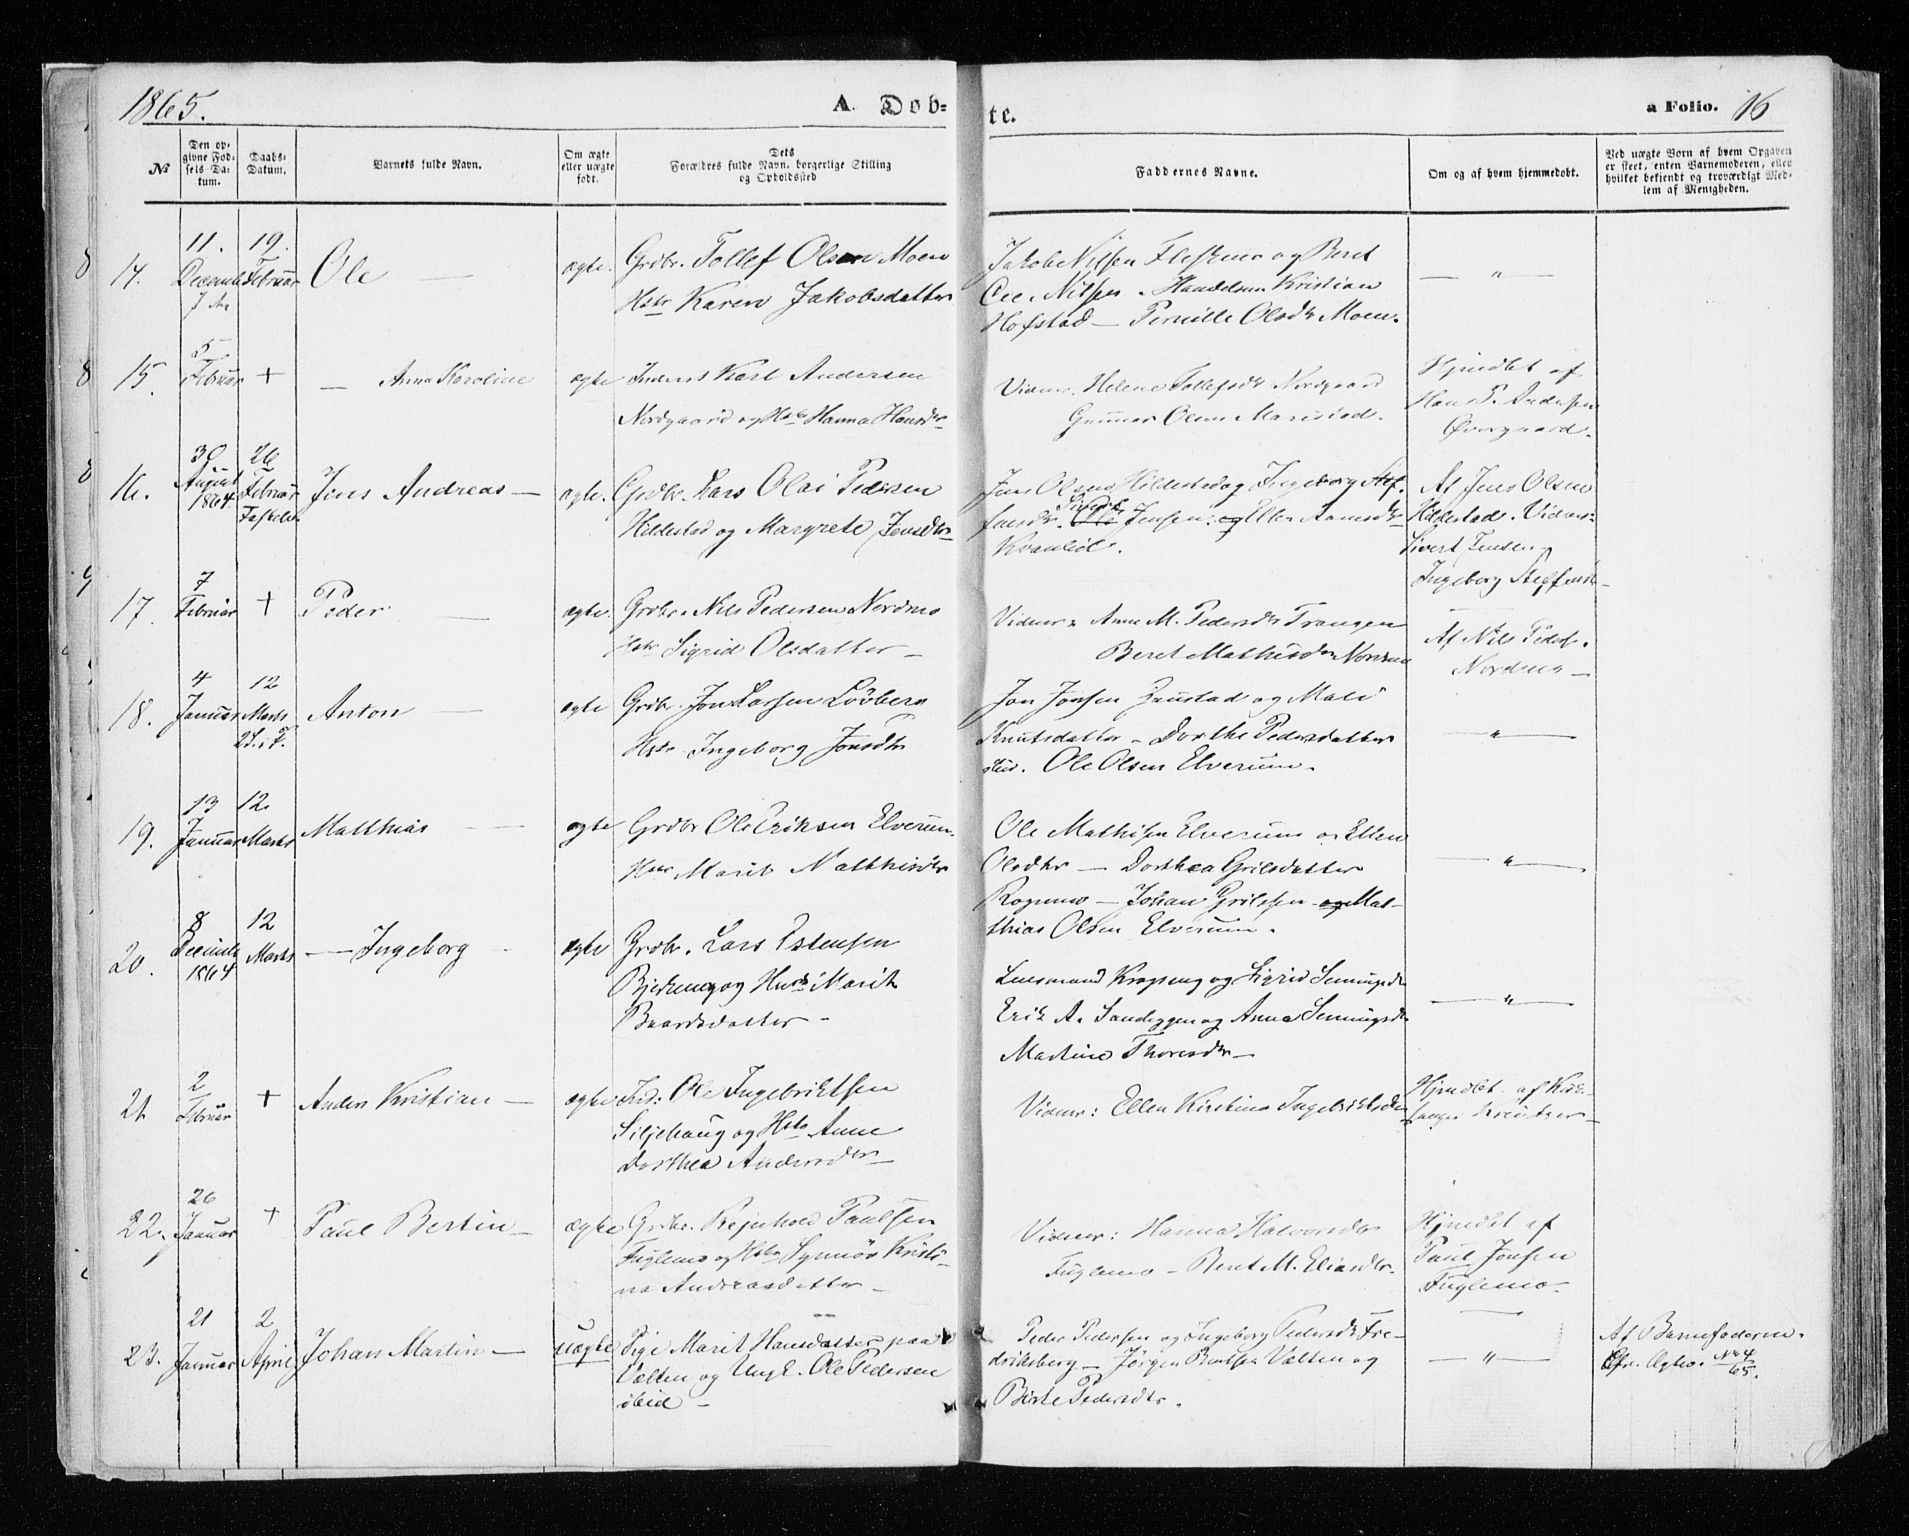 1865.
A. Døb-
te.
a Folio. 16
No
Den op-
givne Fød-
sels Da-
tum.
Daabs-
Datum.
Barnets fulde Navn.
Om ægte
eller uægte
født.
Dets
Forældres fulde Navn, borgerlige Stilling
og Opholdssted
Faddernes Navne.
Om og af hvem hjemmedøbt.
Ved uægte Børn af hvem Opgaven
er skeet, enten Barnemoderen, eller
hvilket bekjendt og troværdigt Med-
lem af Menigheden.
14.
11.
Decemb
19.
Februar
Ole
ægte.
Grdbr. Tollef Olsen Moen
Hstr Karen Jakobsdatter
Jakob Nilsen Fleskmo og Beret
Nilsen. Handelsm Kristian
Hofstad — Pernille Olsdtr Moen.
— " —
15.
5
Februar
+
— Anna Karoline
ægte
Inderst Karl Andersen
Nordgaard og Hstr Hanna Hansdtr
Vidner. Helene Tollefsdtr Nordgaard
Gunnar Olsen Maristad.
Hjmdbt af
Hans P. Andersen
Øvergaard.
16.
30
August
1864.
26
Februar
Jens Andreas —
ægte.
Grdbr. Lars Olai Pedersen
Hildestad og Margrete Jensdtr
Jens Olsen Hildestad og Ingeborg Stef-
fensdtr. Sivert Jensen og Ellen
Af Jens Olsen
Hildestad. Vidner:
Sivert Jensen og
Ingeborg Steffensdtr
17.
7
Februar
+
Peder
ægte.
Grdbr. Nils Pedersen Nordmo
Hstr Sigrid Olsdatter —
Vidner: Anne M. Pedersdtr Trangen
Beret Mathisdtr Nordmo
Af Nils Peders.
Nordmo —
18.
4
Januar
12
Marts
Anton
ægte
Grdbr. Jon Larsen Løvberg
Hstr. Ingeborg Jonsdtr
Jon Jonsen Faustad og Mali
Knutsdatter — Dorthe Pedersdatter
Ole Olsen Elverum.
— " —
19.
13
Januar
12.
Marts
Matthias
ægte
Grdbr Ole Eriksen Elverum.
Hstr Marit Matthisdtr
Ole Mathisen Elverum og Ellen
Olsdtr — Dorthea Grilsdatter
Rognmo — Johan Grilssen og Mat-
thias Olsen Elverum.
— " —
20.
8
Decemb
1864
12
Marts
— Ingeborg
ægte
Grdbr. Lars Estensen
Bjerkeng og Hustr Marit
Baardsdatter —
Lensmand Krogseng og Sigrid Semmingsdtr
Erik A. Sandeggen og Anne Semmingsdtr
Martine Thoresdtr —
— " —
21
2
Februar
+
Anders Kristian —
ægte
Ind: Ole Ingebriktsen
Siljehaug og Hstr Anne
Dorthea Andersdtr —
Vidner: Ellen Kirstine Ingebriktsdtr
Hjmdbt af Kirke-
sanger Kreutzer —
22.
26
Januar
+
Paul Bertin —
ægte
Grdbr. Rejnhold Paulsen
Fuglemo og Hstr Synnøv Kristi-
na Andreasdatter —
Vidner: Hanna Halvorsdtr
Fuglemo — Beret M. Eliasdtr.
Hjmdbt af
Paul Jonsen
Fuglemo —
23.
21
Januar
2
April
Johan Martin —
uægte
Pige Marit Hansdatter paa
Valten og Ungk. Ole Pedersen
ibid —
Peder Pedersen og Ingeborg Pedersdtr Fre-
driksberg — Jørgen Bentsen Valten og
Berte Pedersdtr.
— " —
Af Barnefaderen.
Cfr. Ægtev. No 4
65.